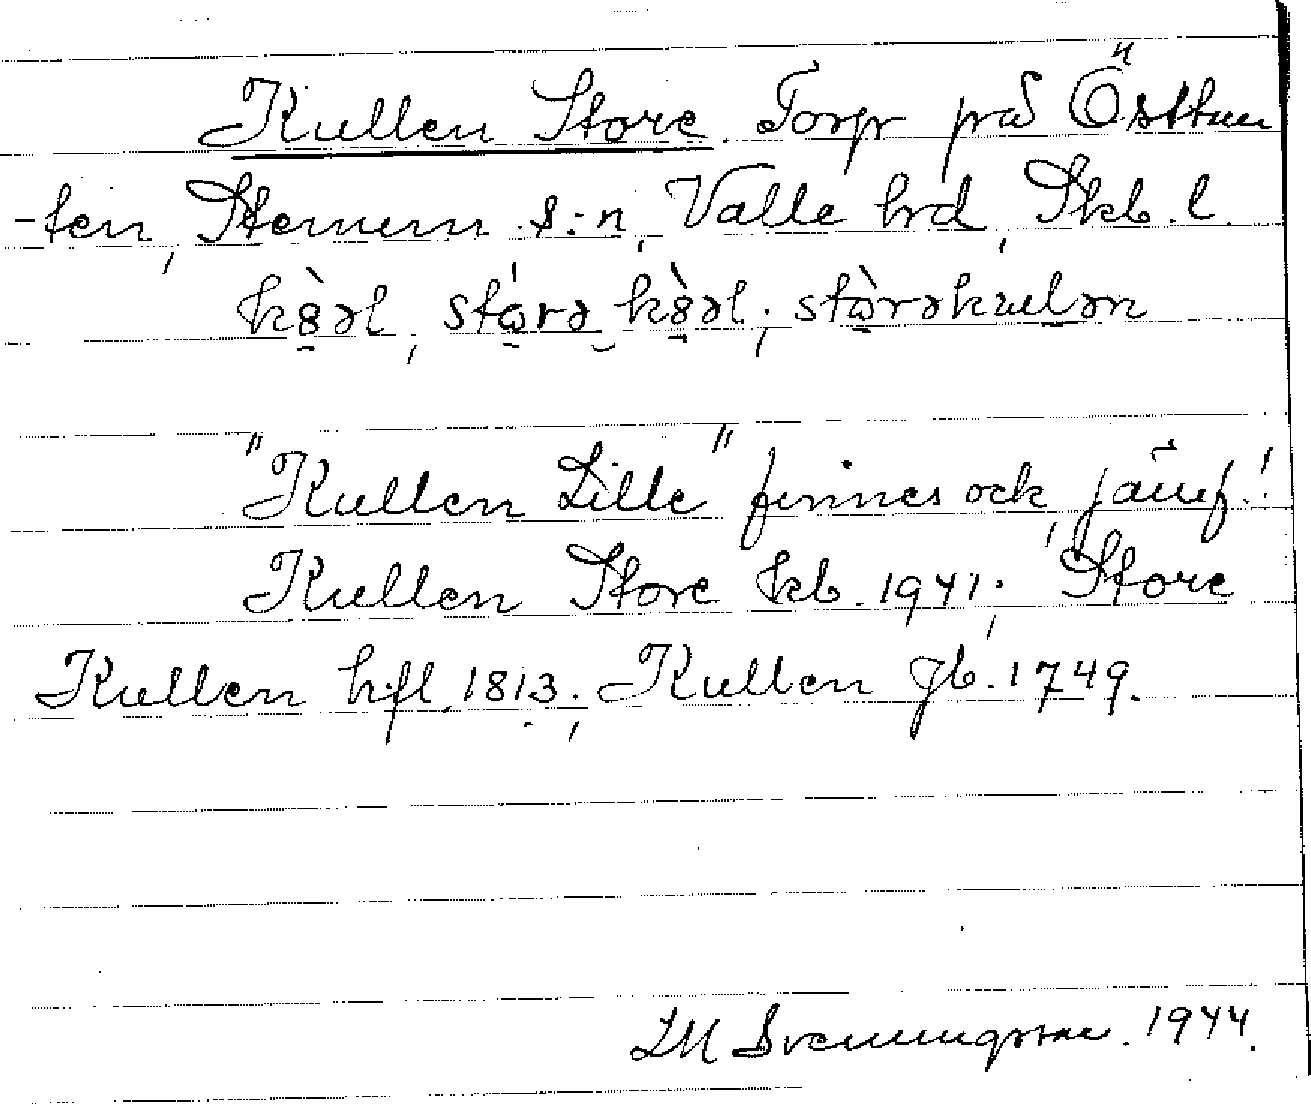 Kullen Store. Torp på Östtun
-ten, Stenum s:n, Valle hrd, Skb. l.
kȣ̀əl, stὼrə kȣ̀əl; stὼrəkulən
"Kullen Lille" finnes ock, jämf.!
Kullen Store kb. 1941; Store
Kullen hfl. 1813; Kullen jb. 1749.
LM Svenningsson. 1944.